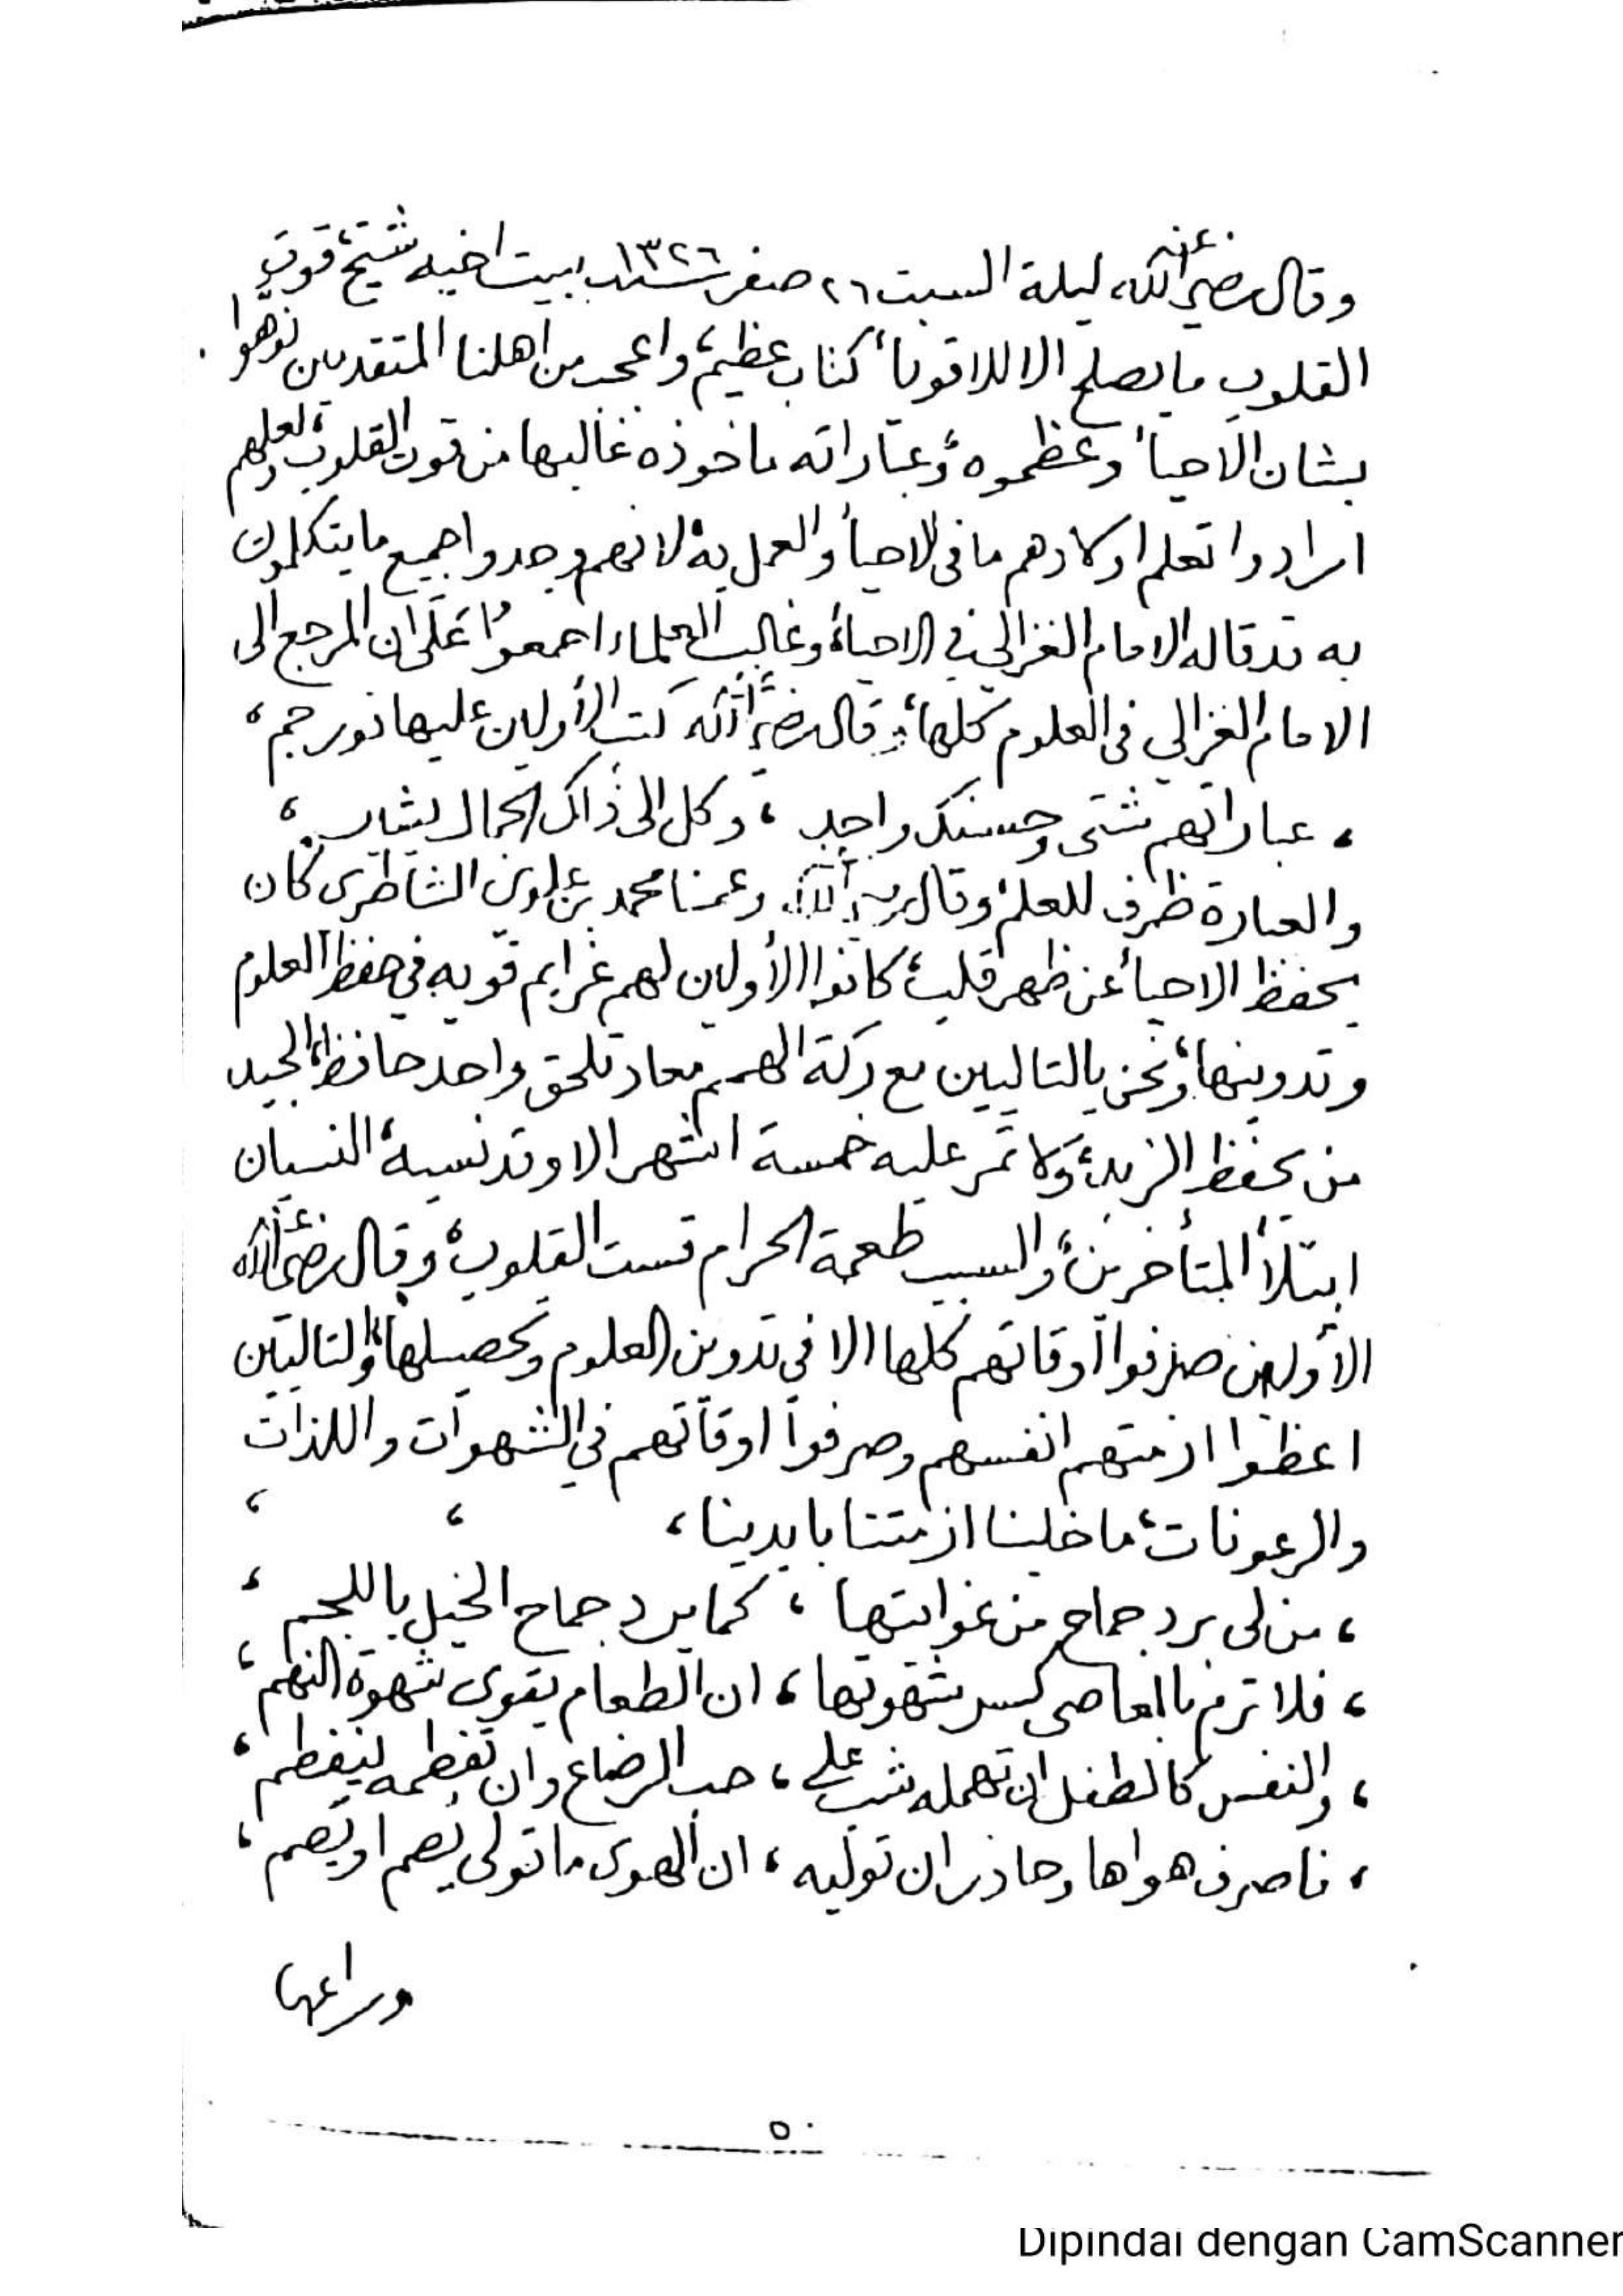 وقال رضي الله عنه ليلة السبت ٢٦ صفر سنة ١٣٢٦ ببيت اخيه شيخ، قوت
القلوب ما يصلح الا للاقويا، كتاب عظيم، واعجب من اهلنا المتقدمين نوهوا
بشان الاحيا وعظموه، وعباراته ماخوذه غالبها من قوت القلوب، لعلهم
ارادوا تعلم اولادهم ما فى الاحيا والعمل به، لانهم وجدوا جميع ما يتكلمون
به قد قاله الامام الغزالي في الاحياء، وغالب العلماء اجمعوا على ان المرجع الى
الامام الغزالي فى العلوم كلها، وقال رضي الله كتب الأولين عليها نور جم،
، عباراتهم شتى وحسنك واحد ، وكل الى ذاك الجمال يشير ،
والعبارة ظرف للعلم، وقال رضي الله وعمنا محمد بن علوي الشاطرى كان
يحفظ الاحيا عن ظهر قلب، كانوا الأولين لهم عزايم قويه في حفظ العلوم
وتدوينها، ونحن يالتاليين مع ركة الهمم معاد تلحق واحد حافظ، الجيد
من يحفظ الزبد، ولا تمر عليه خمسة اشهر الا وقد نسيه، النسيان
ابتلأ المتأخرين، والسبب طعمة الحرام قست القلوب، وقال رضي الله عنه
الأولين صرفوا أوقاتهم كلها الا فى تدوين العلوم وتحصيلها، والتاليين
اعظوا ازمتهم انفسهم وصرفوا اوقاتهم في الشهوات واللذات
والرعونات، ما خلينا ازمتنا بايدينا، ، ،
، من لى برد جماح من غوايتها ، كما يرد جماح الخيل باللجم ،
، فلا ترم باالمعاصى كسر شهوتها ، ان الطعام يقوى شهوة النهم ،
، والنفس كالطفل ان تهمله شب على ، حب الرضاع وان تفطمه ينفطم ،
، فاصرف هواها وحاذر ان توليه ، ان الهوى ما تولى يصم او يصم ،
وراعها
٥٠
Dipindai dengan CamScanner